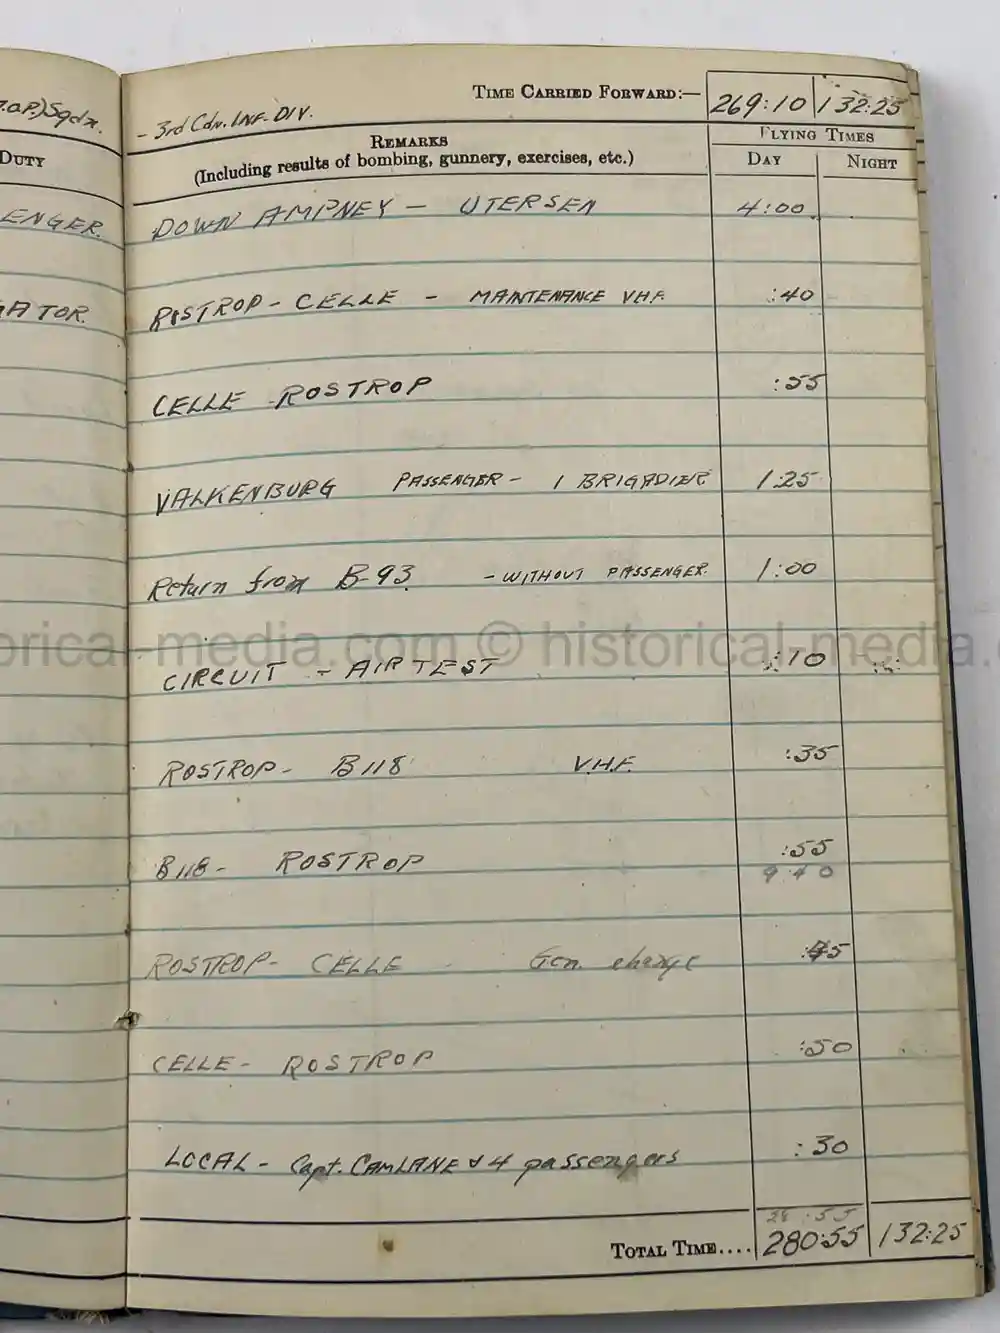 O.P.) Sqdn.
DUTY
ENGER.
ATOR.
- 3rd Cdn. INF. DIV.
TIME CARRIED FORWARD:— 269:10 132:25
REMARKS
(Including results of bombing, gunnery, exercises, etc.)
FLYING TIMES
DAY NIGHT
DOWN AMPNEY - UTERSEN 4:00
ROSTROP - CELLE - MAINTENANCE V.H.F. :40
CELLE - ROSTROP :55
VALKENBURG PASSENGER - 1 BRIGADIER 1:25
Return from B-93. - WITHOUT PASSENGER. 1:00
orical-media.com © historical-media.
CIRCUIT - AIR TEST :10
ROSTROP - B118 V.H.F. :35
B118 - ROSTROP :55
9 40
ROSTROP - CELLE Gen. change :45
CELLE - ROSTROP :50
LOCAL - Capt. CAMLANE & 4 passengers :30
:55
TOTAL TIME.... 280:55 132:25